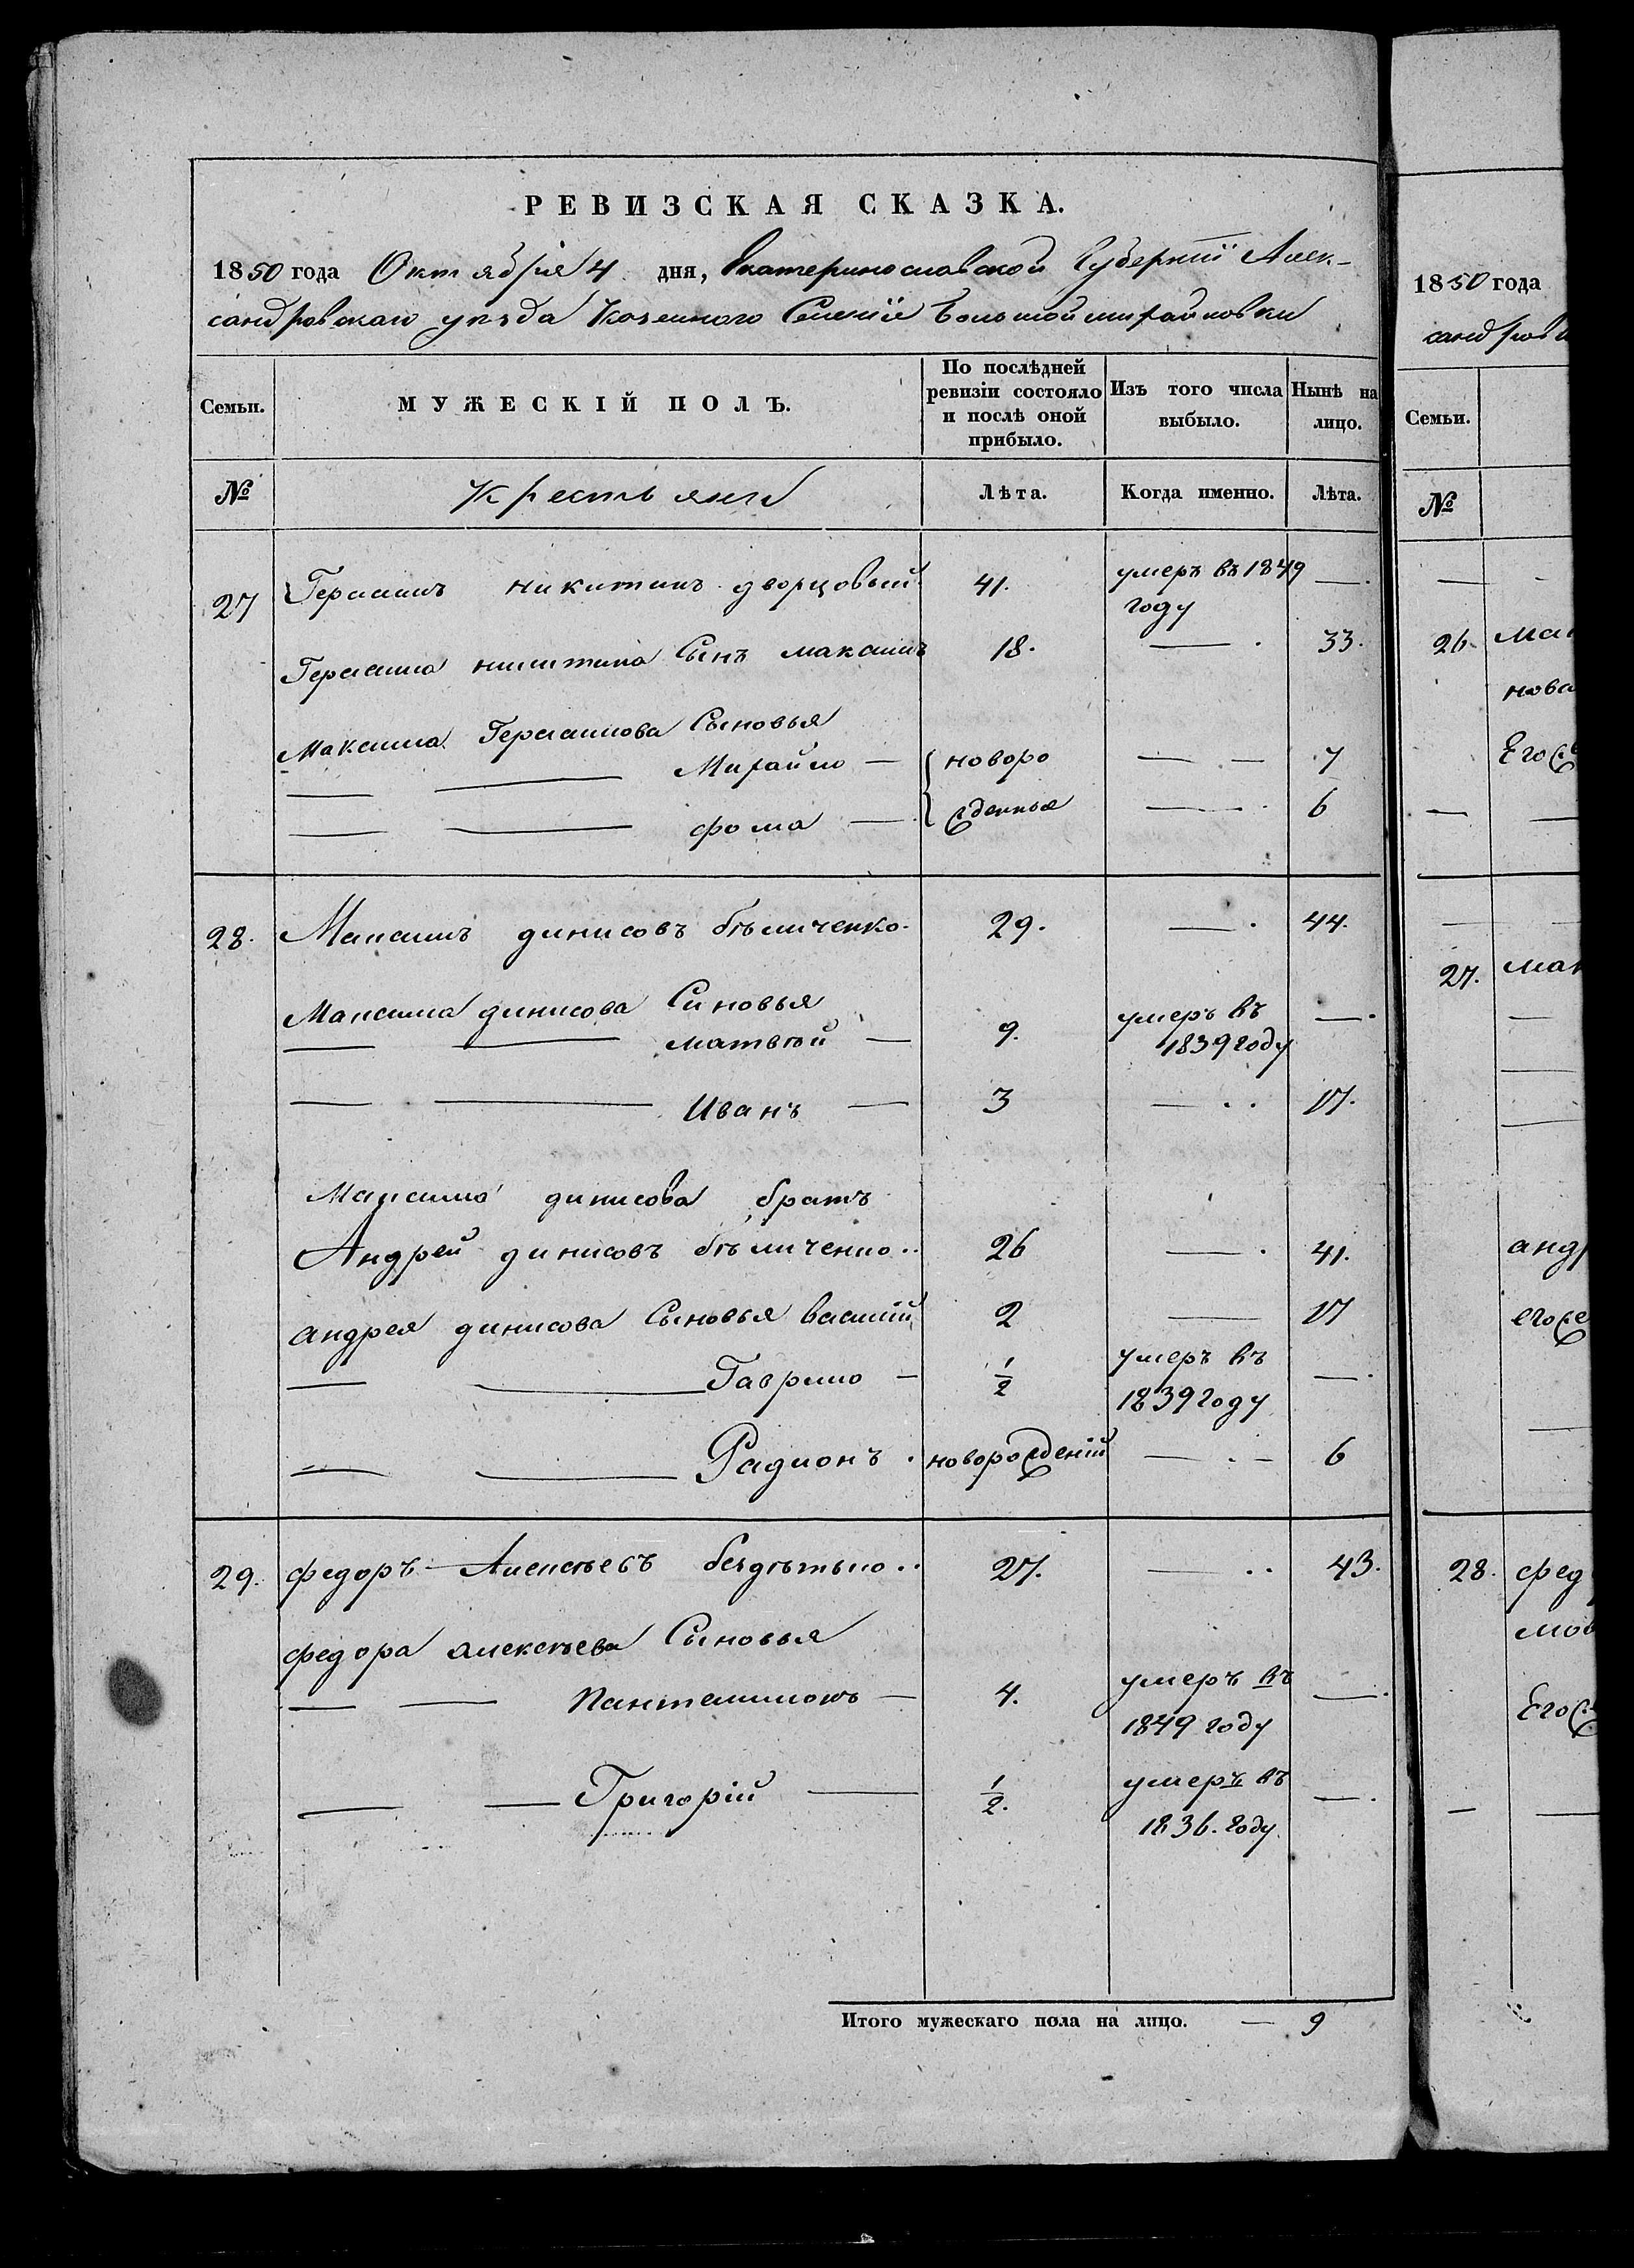 РЕВИЗСКАЯ СКАЗКА.
1850 года Октября 4 дня, Екатеринославской Губерніи Алек-
сандровскаго уезда Казенного Селенія Большой михайловки
Семьи.
МУЖЕСКІЙ ПОЛЪ.
По послѣдней ревизіи состояло и послѣ оной прибыло.
Изъ того числа выбыло.
Нынѣ на лицо.
№ Крестьянъ Лѣта. Когда именно. Лѣта.
27 Герасимъ никитинъ дворцовый 41. умеръ въ 1849 —
году
Герасима никитина Сынъ максимъ 18. — 33.
Максима Герасимова Сыновья
— — Михайло — новоро — — 7
— — фома — жденные — 6
28. Максимъ динисовъ бѣличенко. 29. — 44.
Максима динисова Синовья
— — матвѣй — 9. умеръ въ —
1839 году
— — Иванъ — 3 — 17.
Максима динисова братъ
Андрей динисовъ бѣличенко.. 26 — 41.
андрея динисова Сыновья василій 2 — 17
— — Гаврило — 1/2 умеръ въ —
1839 году
— — Радионъ. новорожденій — — 6
29. федоръ Алексѣевъ бездѣтько.. 27. — 43.
федора алексѣева Сыновья
— — Пантелимонъ — 4. умеръ въ —
1849 году
— — Григорій — 1/2. умеръ въ —
1836. году.
Итого мужескаго пола на лицо. — 9
1850 года
Семьи.
№
26.
нова
27.
28.